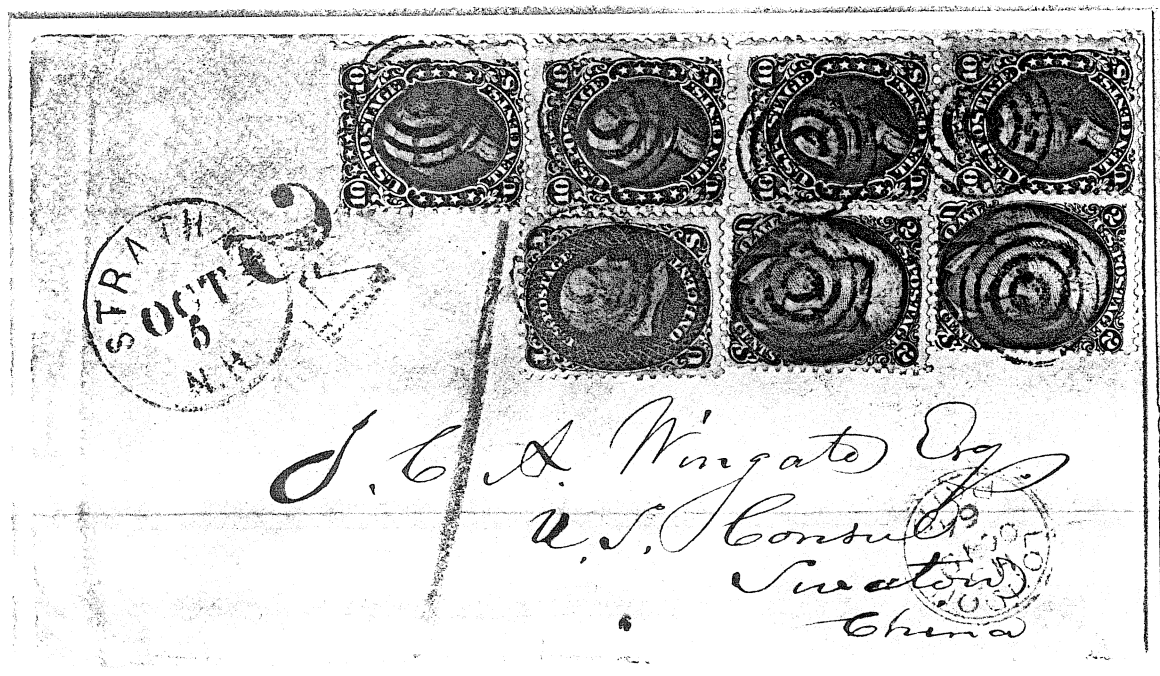 U.S. POSTAGE
TEN CENTS
10 10
U.S. POSTAGE
TEN CENTS
10 10
U.S. POSTAGE
TEN CENTS
10 10
U.S. POSTAGE
TEN CENTS
10 10
U.S. POSTAGE
U.S. POSTAGE
U.S. POSTAGE
STRATH
OCT
5
N.H.
J. C. A. Wingate Esq
U. S. Consul
Swatow
China